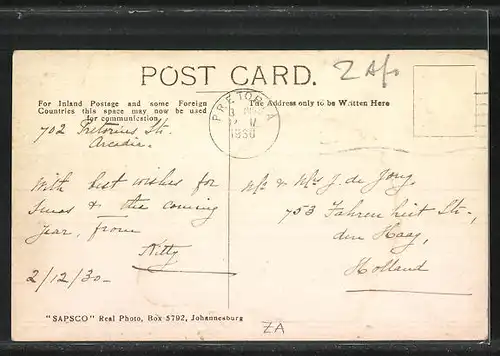 POST CARD.
Z Afr
For Inland Postage and some Foreign
Countries this space may now be used
for communication.
The Address only to be Written Here
PRETORIA
1930
702 Pretorius Str.
Arcadia.
With best wishes for
Xmas & the coming
year, from
Kitty
2/12/30-
Mr & Mrs J. de Jong,
753 Fahrenheit Str.,
den Haag,
Holland
"SAPSCO" Real Photo, Box 5792, Johannesburg
ZA